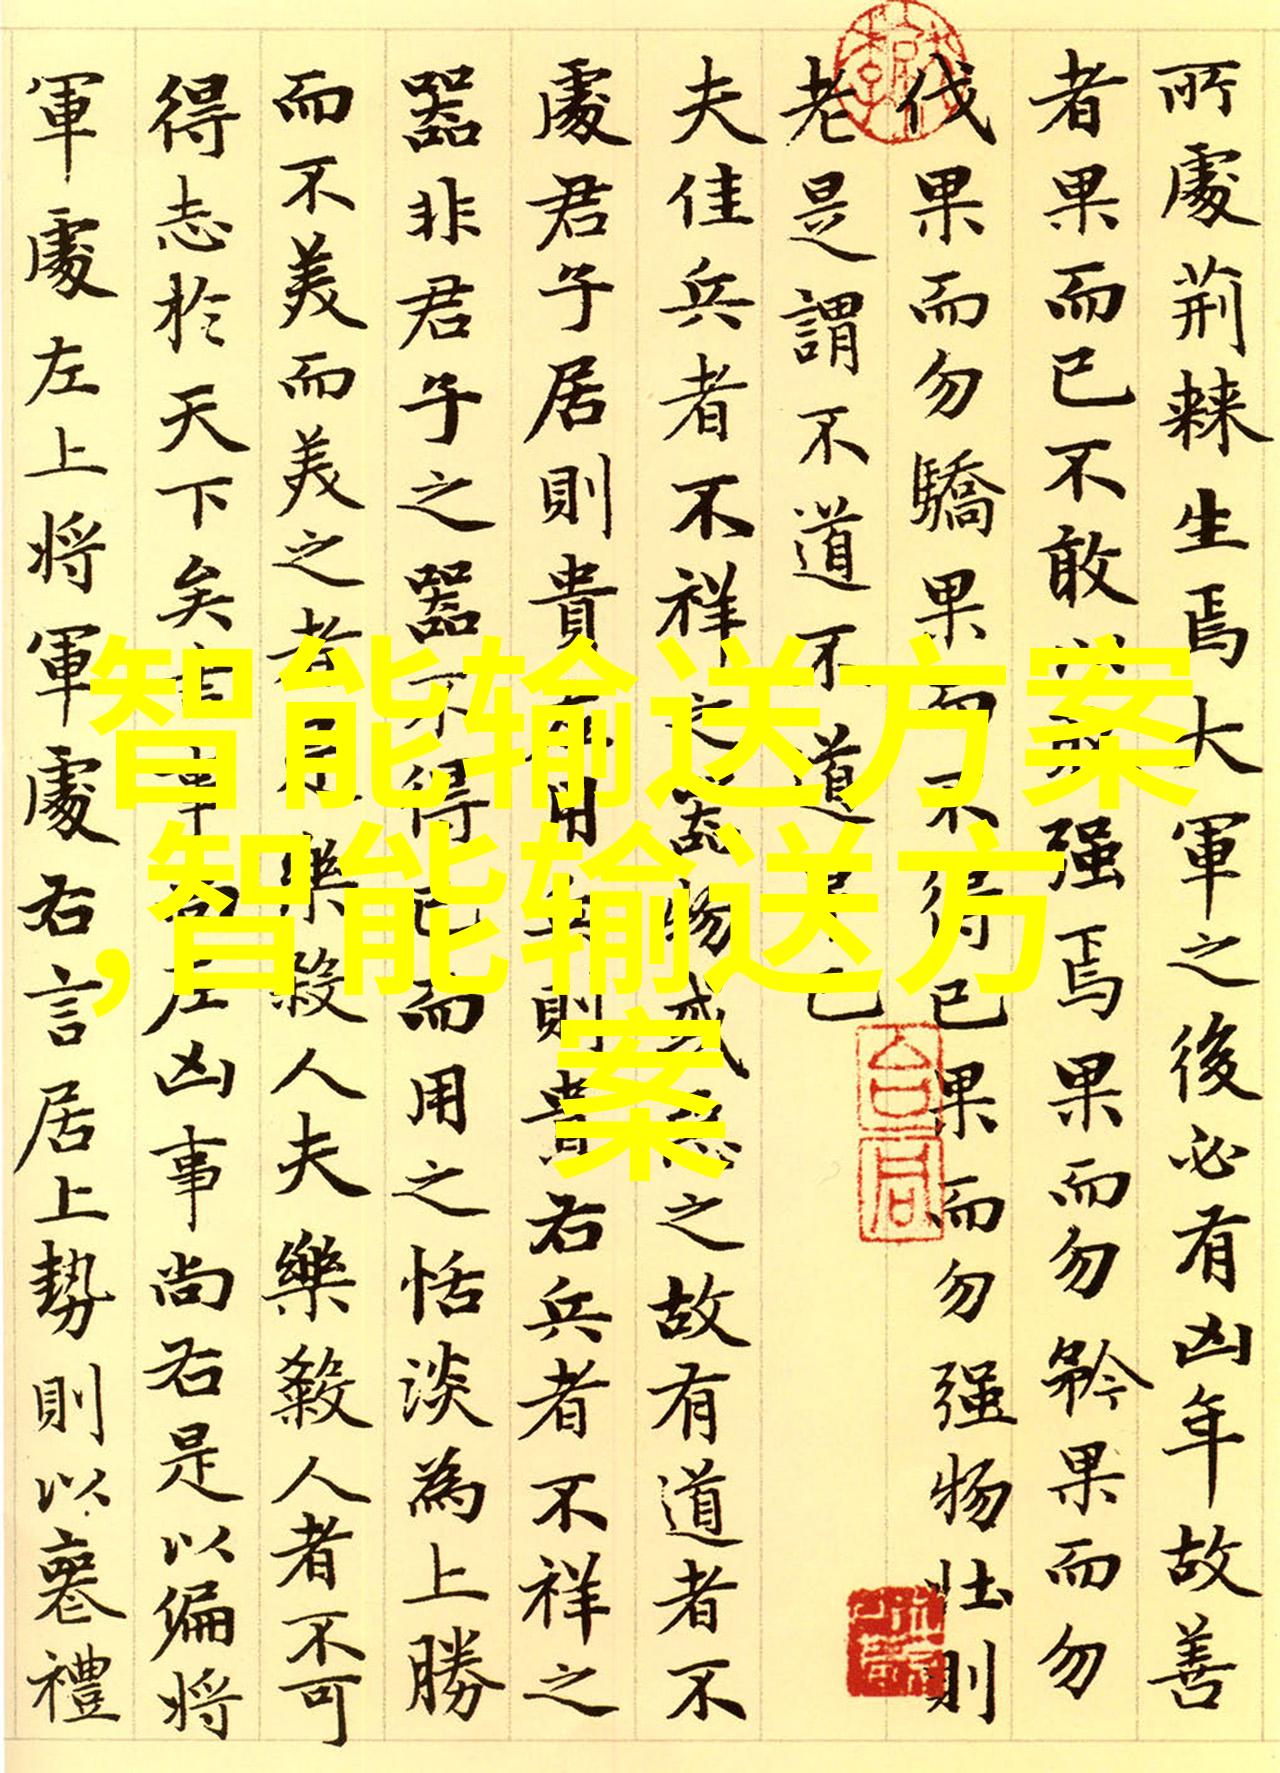 所處荊棘生焉大軍之後必有凶年故善
者果而已不敢以取强焉果而勿矜果而勿
伐果而勿驕果而不得已果而勿强物壮則
老是謂不道不道早已
夫佳兵者不祥之器物或惡之故有道者不
處君子居則貴左用兵則貴右兵者不祥之
器非君子之器不得已而用之恬淡為上勝
而不美而美之者是樂殺人夫樂殺人者不可
得志於天下矣吉事尚左凶事尚右是以偏將
軍處左上将軍處右言居上勢則以喪禮
智能输送方案
,智能输送方
案